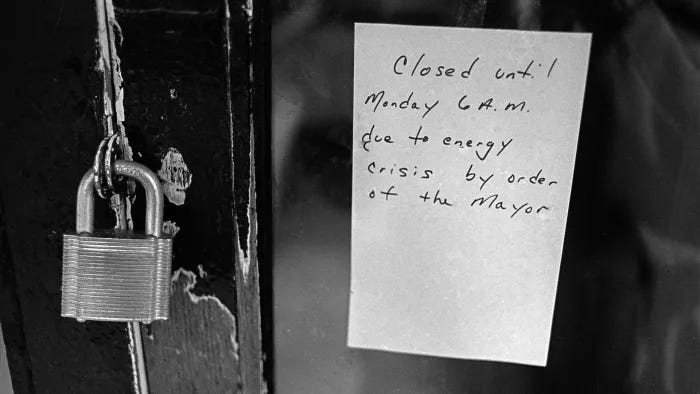 Closed until
Monday 6 A.M.
due to energy
crisis by order
of the Mayor